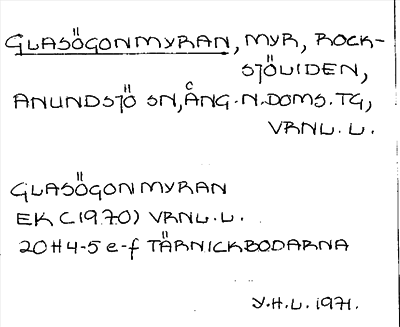 GLASÖGONMYRAN, MYR, ROCK-
SJÖLIDEN,
ANUNDSJÖ SN, ÅNG.N.DOMS.TG,
VRNL.L.
GLASÖGONMYRAN
EK (1970) VRNL.L.
20H4-5e-f TÄRNICKBODARNA
Y.H.L. 1971.